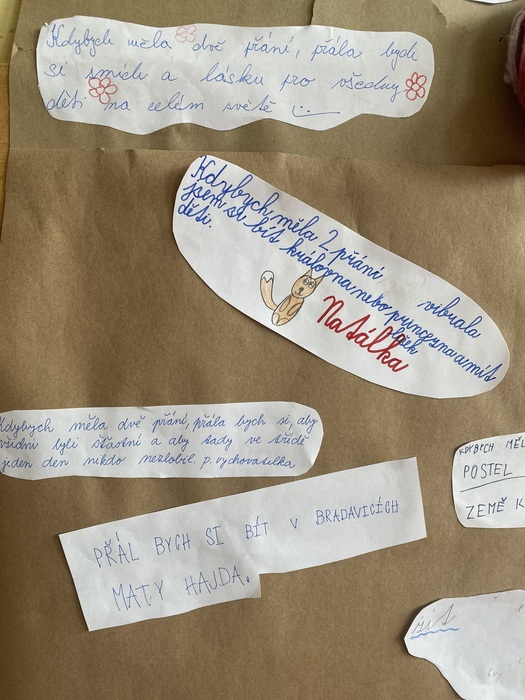 Kdybych měla dvě přání, přála bych
si smích a lásku pro všechny
děti na celém světě
Kdybych měla 2 přání vibrala
jsem si bít královna nebo princezna a mít
děti.
Natálka
Kdybych měla dvě přání, přála bych si, aby
všichni byli šťastní a aby tady ve třídě
jeden den nikdo nezlobil. p. vychovatelka
KDYBYCH MĚL
POSTEL
ZEMĚ K
PŘÁL BYCH SI BÍT V BRADAVICÍCH
MATY HAJDA.